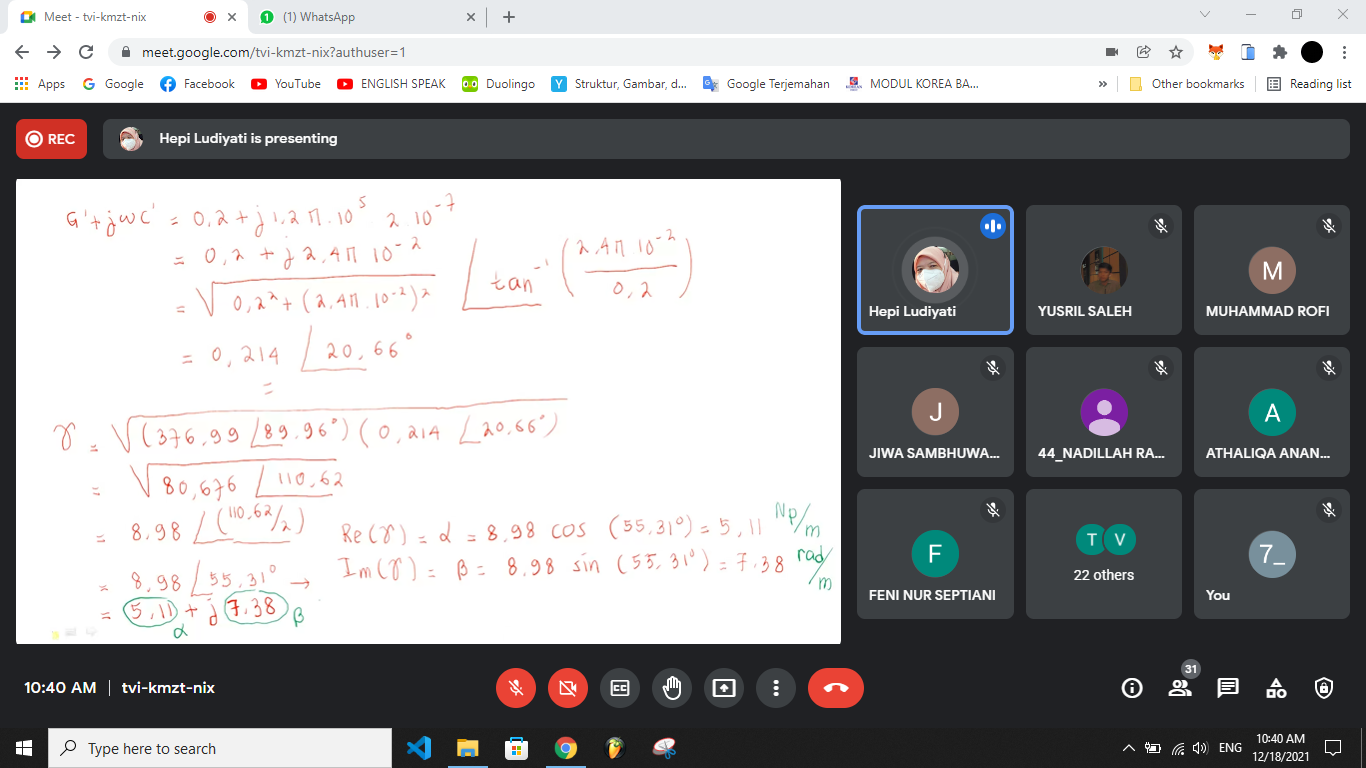 Meet - tvi-kmzt-nix
(1) WhatsApp
meet.google.com/tvi-kmzt-nix?authuser=1
Apps Google Facebook YouTube ENGLISH SPEAK Duolingo Struktur, Gambar, d... Google Terjemahan MODUL KOREA BA... » Other bookmarks Reading list
REC
Hepi Ludiyati is presenting
G'+jωC' = 0,2 + j 1,2π.10⁵ 2 10⁻⁷
= 0,2 + j 2,4π 10⁻²
= √(0,2² + (2,4π.10⁻²)²) ∠tan⁻¹ (2,4π 10⁻² / 0,2)
= 0,214 ∠20,66°
=
γ = √((376,99 ∠89,96°) (0,214 ∠20,66°))
= √(80,676 ∠110,62)
= 8,98 ∠(110,62/2)
= 8,98 ∠55,31° →
= 5,11 + j 7,38
α β
Re(γ) = α = 8,98 cos (55,31°) = 5,11 Np/m
Im(γ) = β = 8,98 sin (55,31°) = 7,38 rad/m
Hepi Ludiyati
YUSRIL SALEH
M
MUHAMMAD ROFI
J
JIWA SAMBHUWA...
44_NADILLAH RA...
A
ATHALIQA ANAN...
F
FENI NUR SEPTIANI
T V
22 others
7_
You
10:40 AM | tvi-kmzt-nix
CC
31
Type here to search
ENG
10:40 AM
12/18/2021